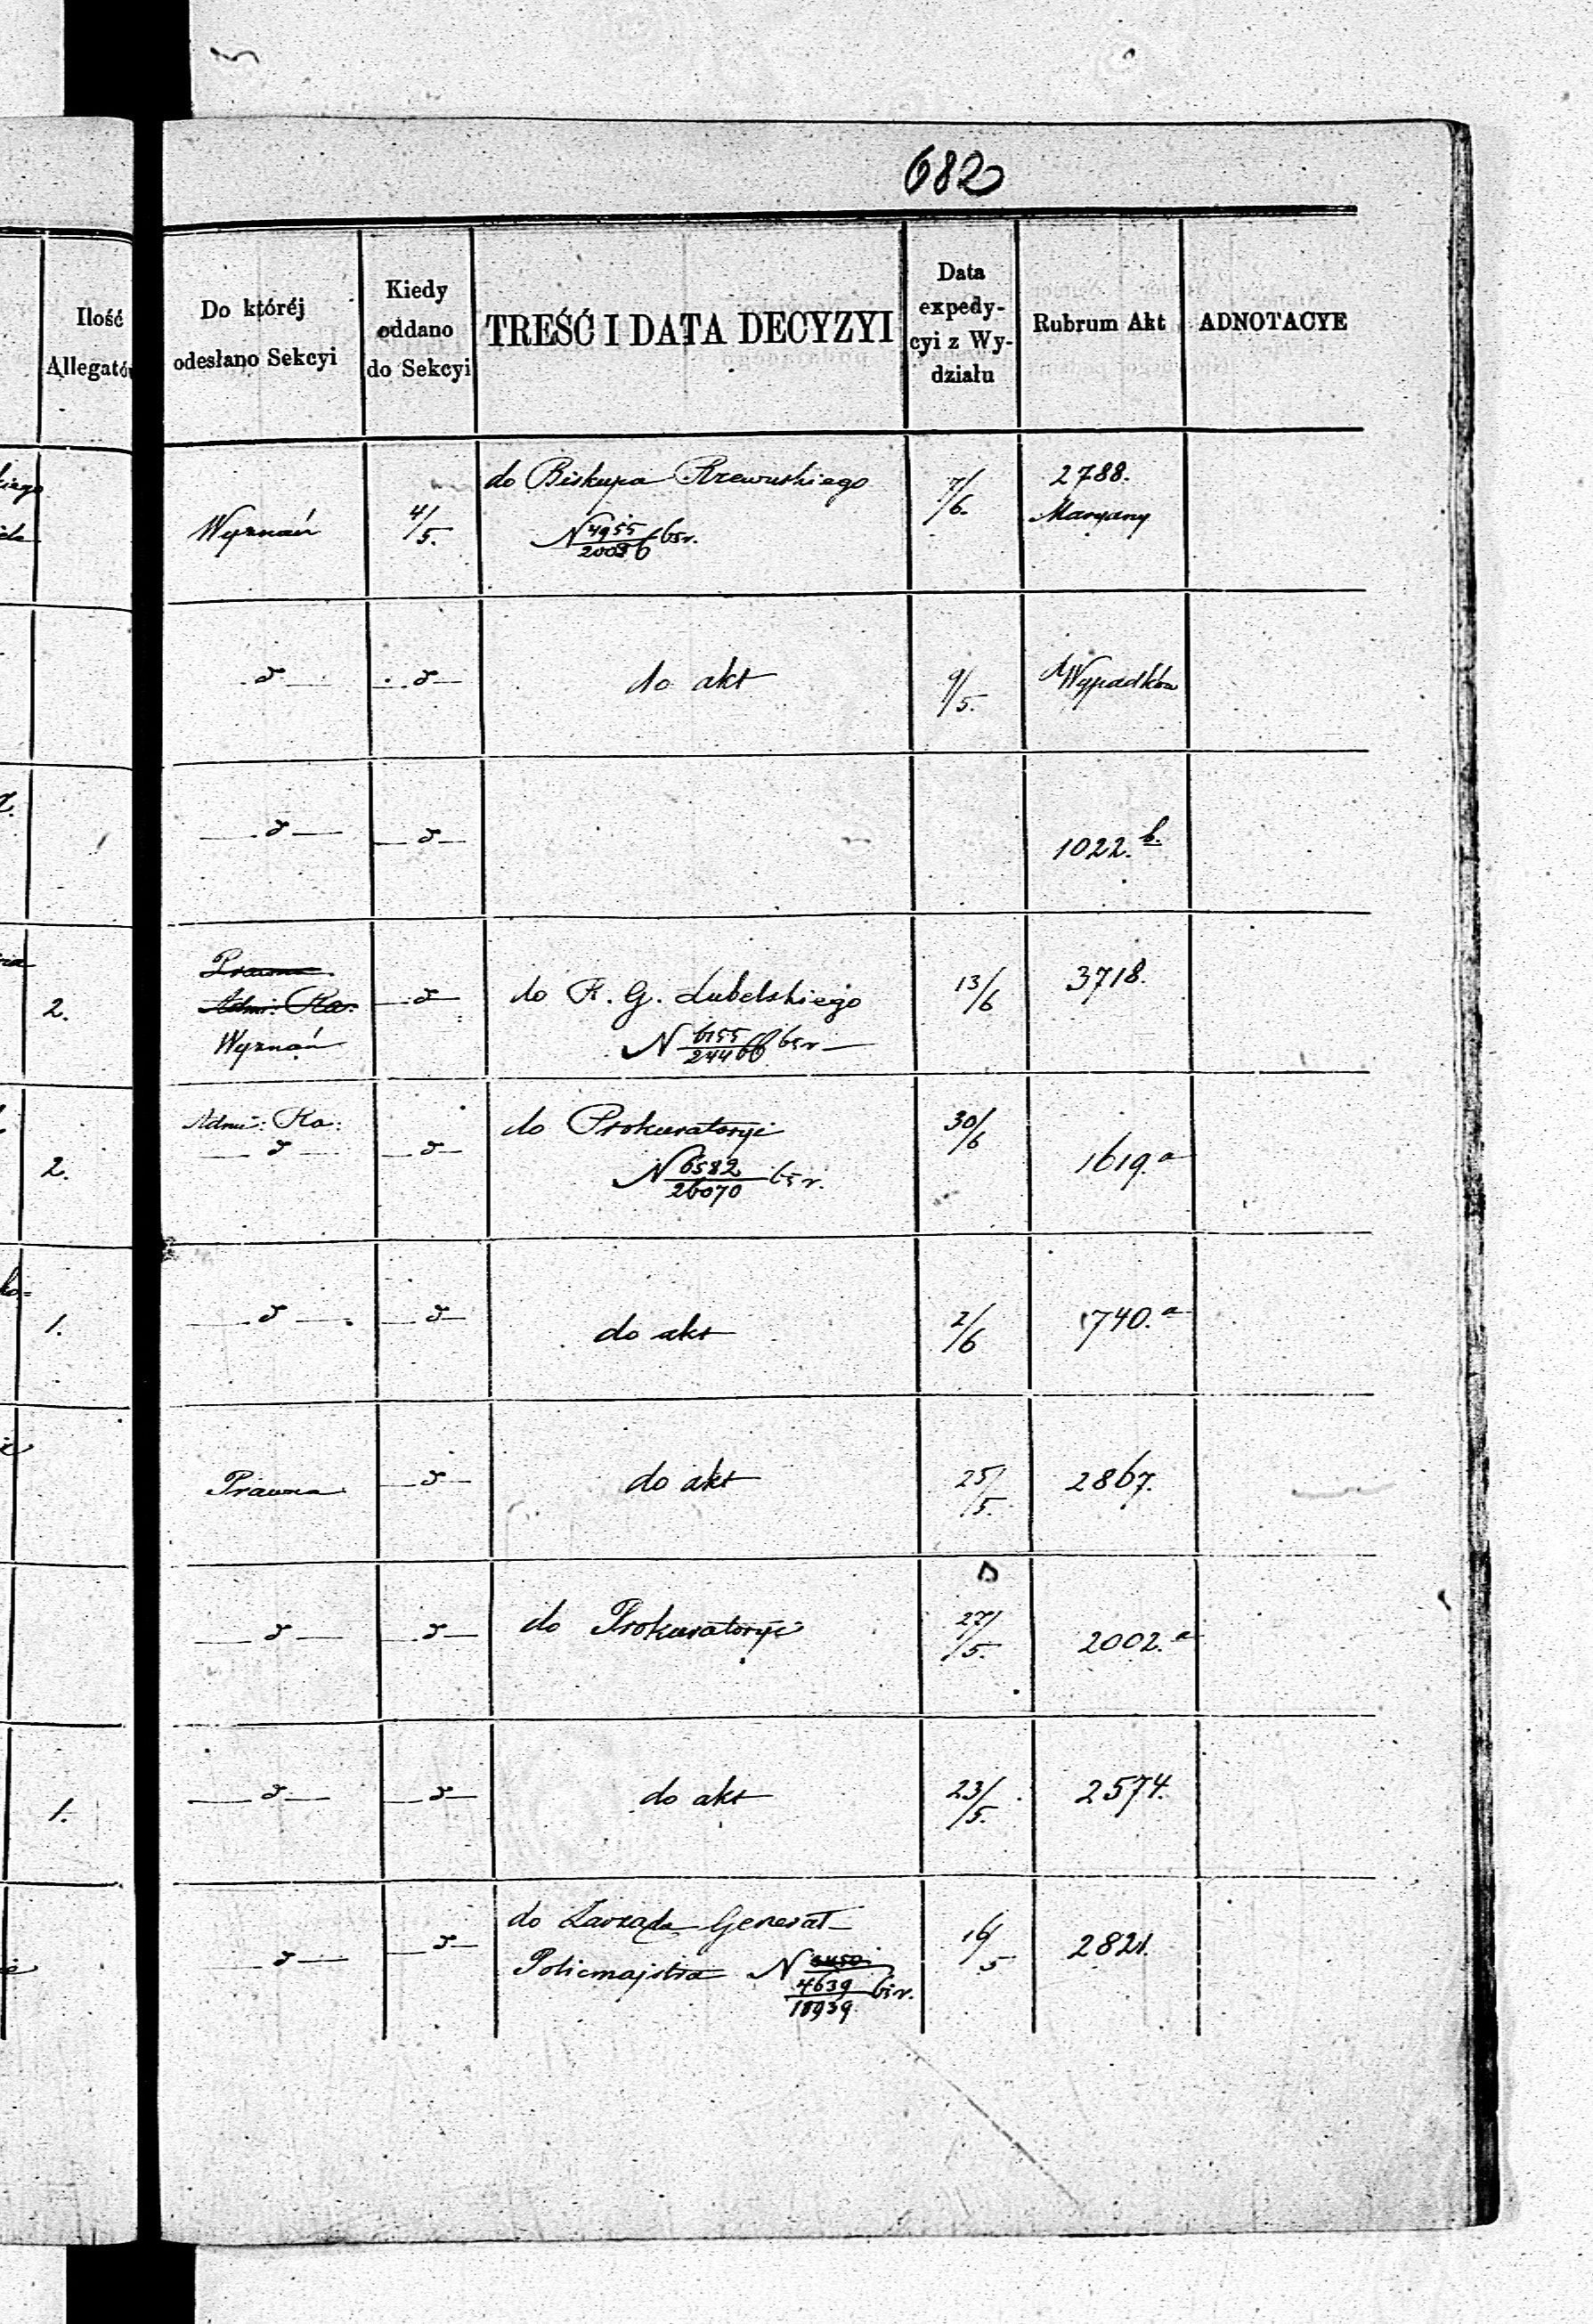 682
Ilość
Allegatów
Do któréj
odesłano Sekcyi
Kiedy
oddano
do Sekcyi
TREŚĆ I DATA DECYZYI
Data
expedy-
cyi z Wy-
działu
Rubrum Akt
ADNOTACYE
Wyznań
4/5.
do Biskupa Rzewuskiego
N 4955
7/6.
2788.
Maryany
do akt
9/5.
Wypadków
1022. b.
2.
Prawna
Adm: Ka:
Wyznań
do R. G. Lubelskiego
N 6155
13/6
3718.
2.
Adm: Ka:
do Prokuratoryi
N 6582
26070
30/6
1619. a
1.
do akt
2/6
740. a
Prawna
do akt
25/5.
2867.
do Prokuratoryi
27/5.
2002. a
1.
do akt
23/5.
2574.
do Zarządu Generał
Policmajstra N
4639
18939.
16/5
2821.